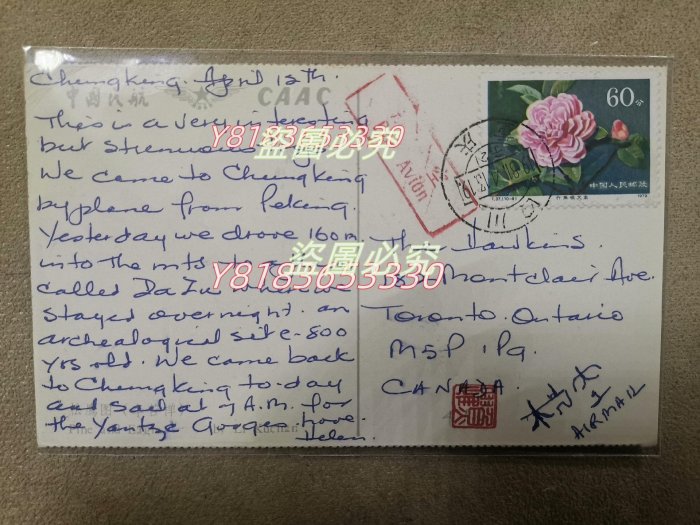 Chungking. April 12th.
中國民航 CAAC
This is a very interesting
but strenuous
We came to Chungking
by plane from Peking.
Yesterday we drove 160m
into the mts to a
called DaZu where we
stayed overnight. an
archealogical site - 800
yrs old. We came back
to Chungking to-day
and sail at 7 A.M. for
the Yantze Gorges. love.
Helen.
Par Avion
60分
中国人民邮政
1979
Hawkins.
Montclair Ave.
Toronto. Ontario
M5P. 1P9.
CANADA.
AIRMAIL
Y8183653330
盜圖必究
盜圖必究
Y8183653330